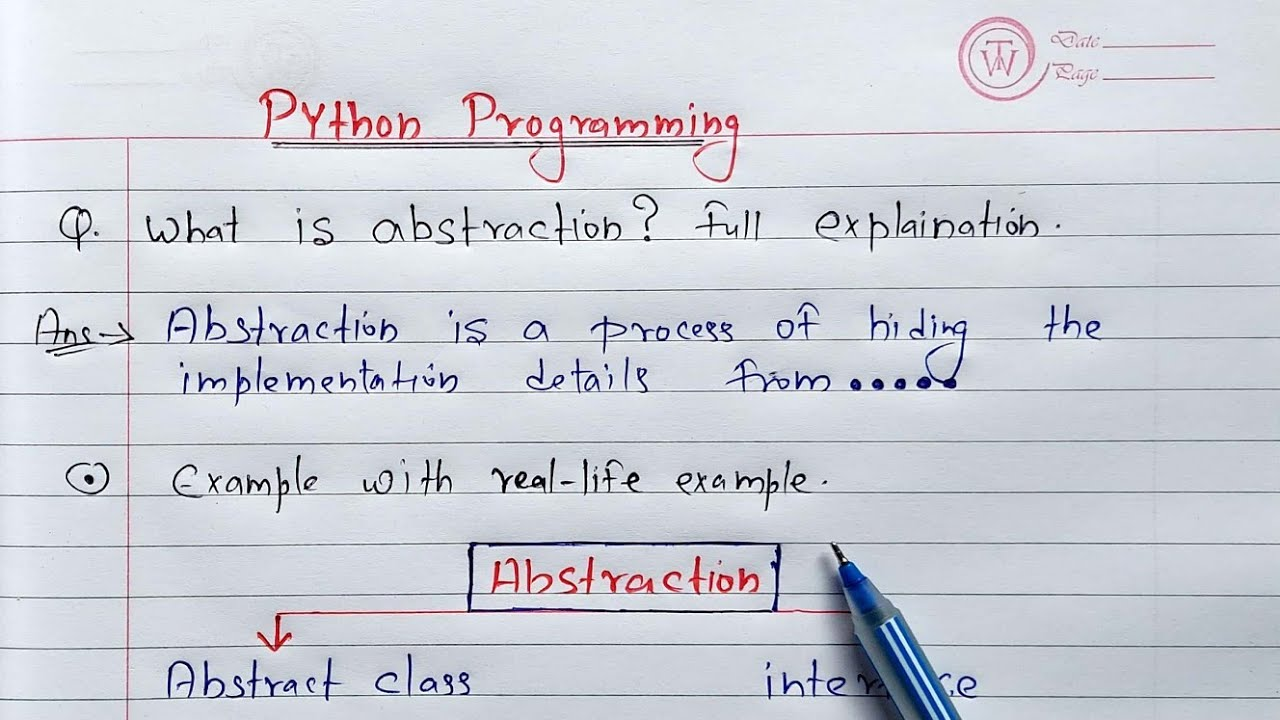 Date
Page
Python Programming
Q. What is abstraction? full explaination.
Ans→ Abstraction is a process of hiding the
implementation details from.....
Example with real-life example.
Abstraction
Abstract class